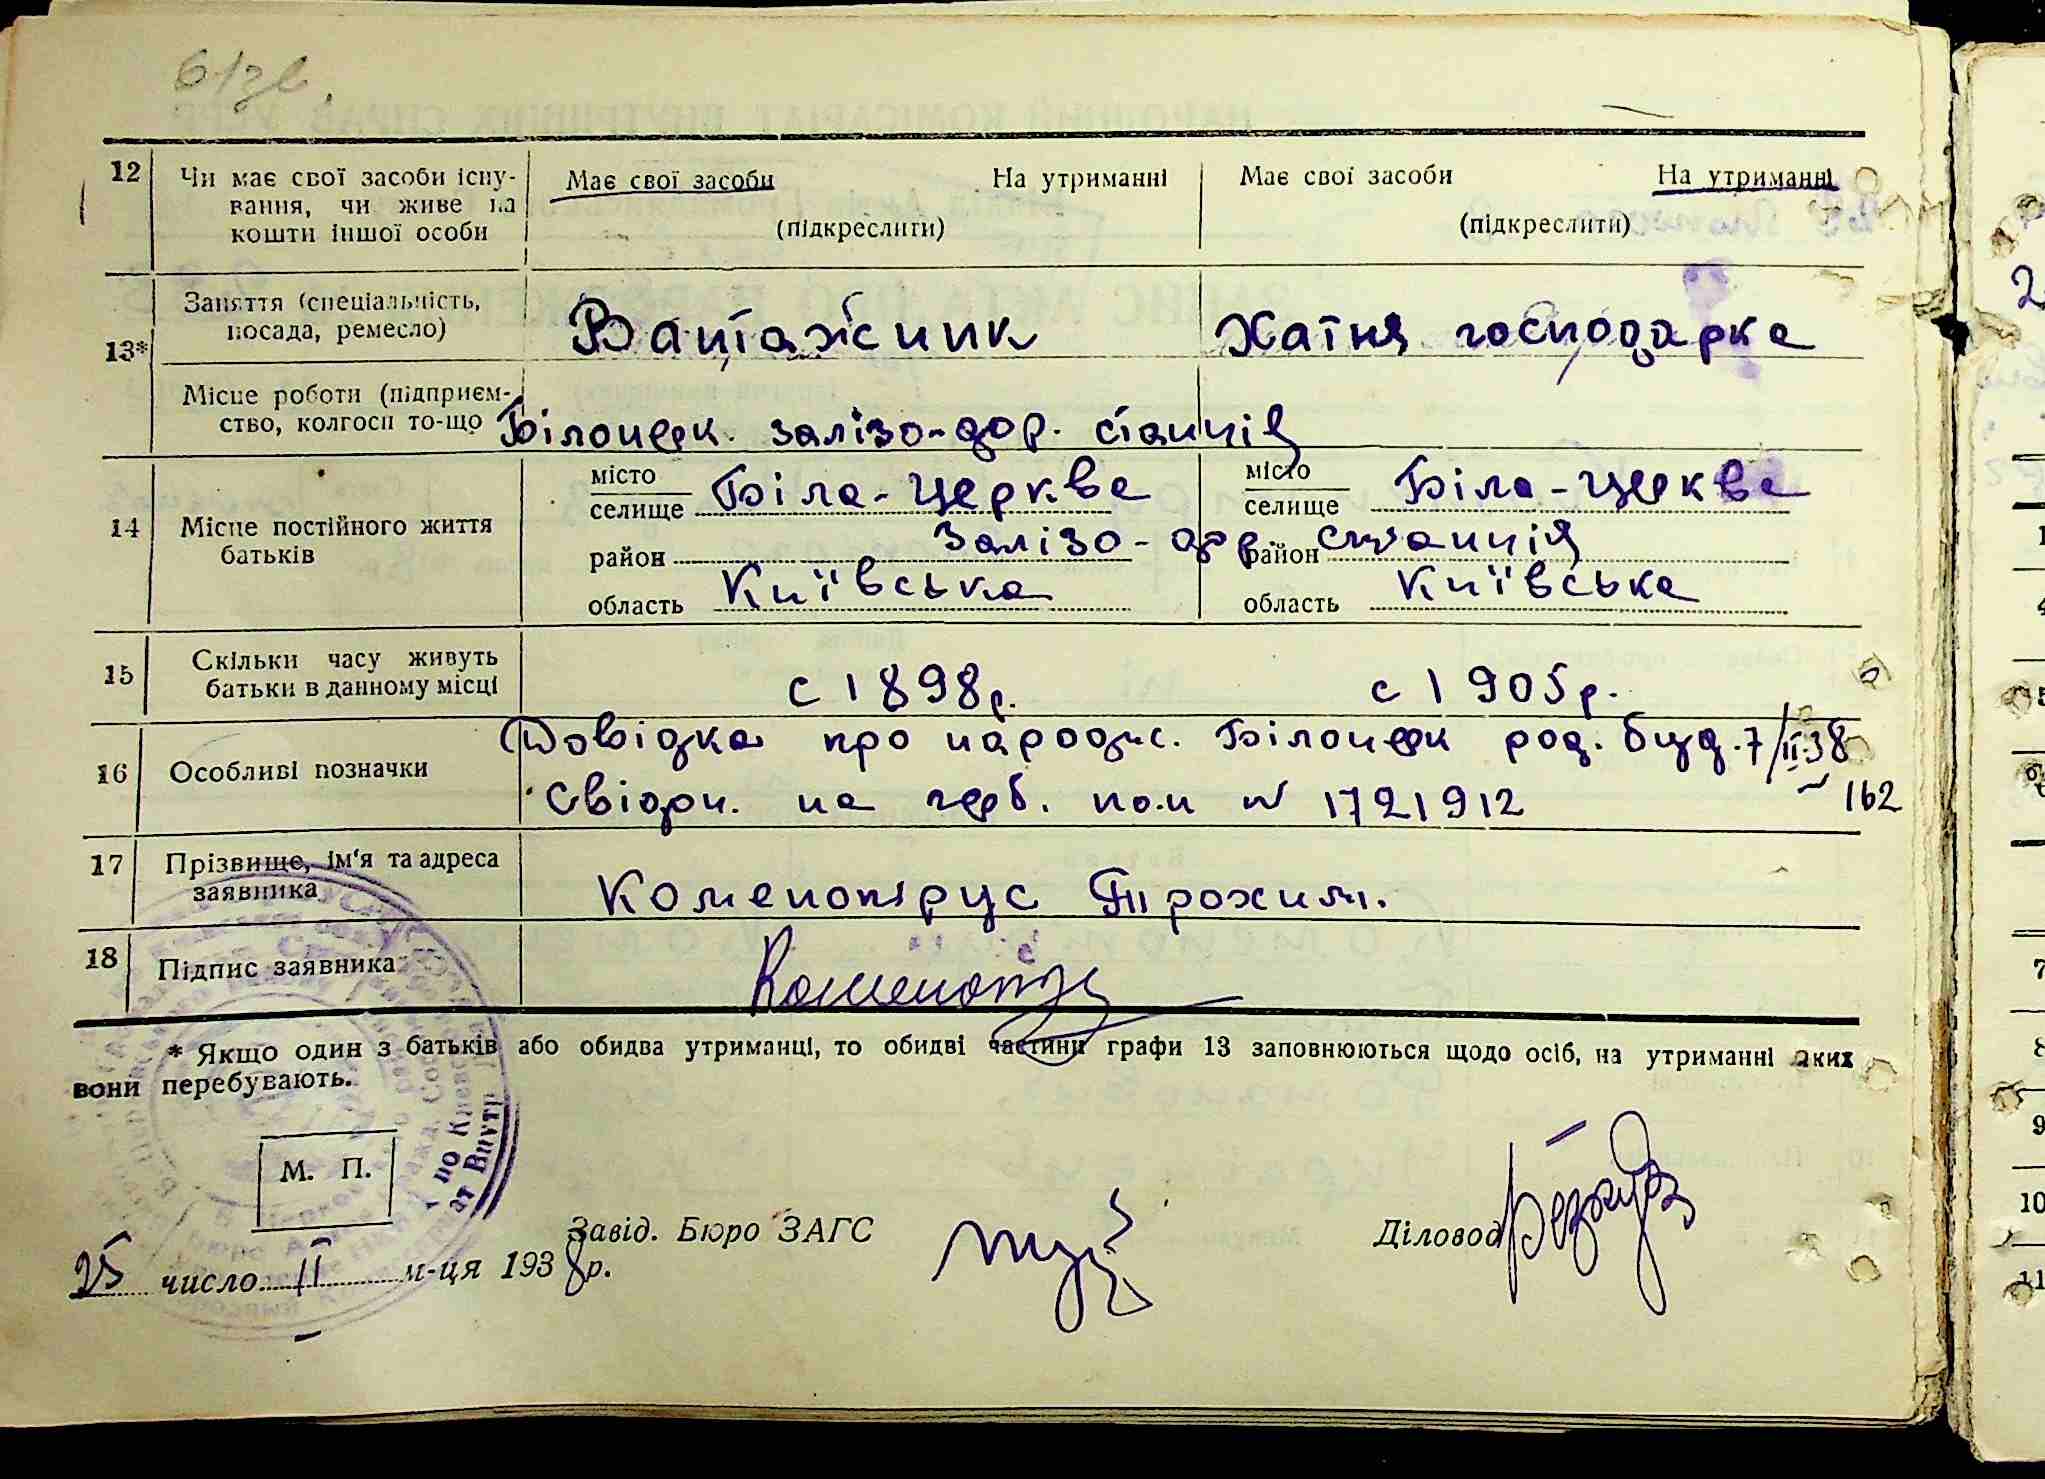 61зв.
12 Чи має свої засоби існування, чи живе на кошти іншої особи
Має свої засоби На утриманні
(підкреслити)
Має свої засоби На утриманні
(підкреслити)
13* Заняття (спеціальність, посада, ремесло)
Вантажник Хатня господарка
Місце роботи (підприємство, колгосп то-що
Білоцерк. залізо-дор. станція
14 Місце постійного життя батьків
місто селище Біла-Церква
місто селище Біла-Церква
район район Залізо-дор. станція
область Київська
область Київська
15 Скільки часу живуть батьки в данному місці
с 1898 р. с 1905 р.
16 Особливі позначки
Довідка про народж. Білоцерк род. буд. 7/II-38
Свідоц. на герб. пом N 1721912 162
17 Прізвище, ім'я та адреса заявника
18 Підпис заявника
* Якщо один з батьків або обидва утриманці, то обидві частини графи 13 заповнюються щодо осіб, на утриманні яких
вони перебувають.
М. П.
Завід. Бюро ЗАГС
Діловод
25 число II м-ця 1938 р.